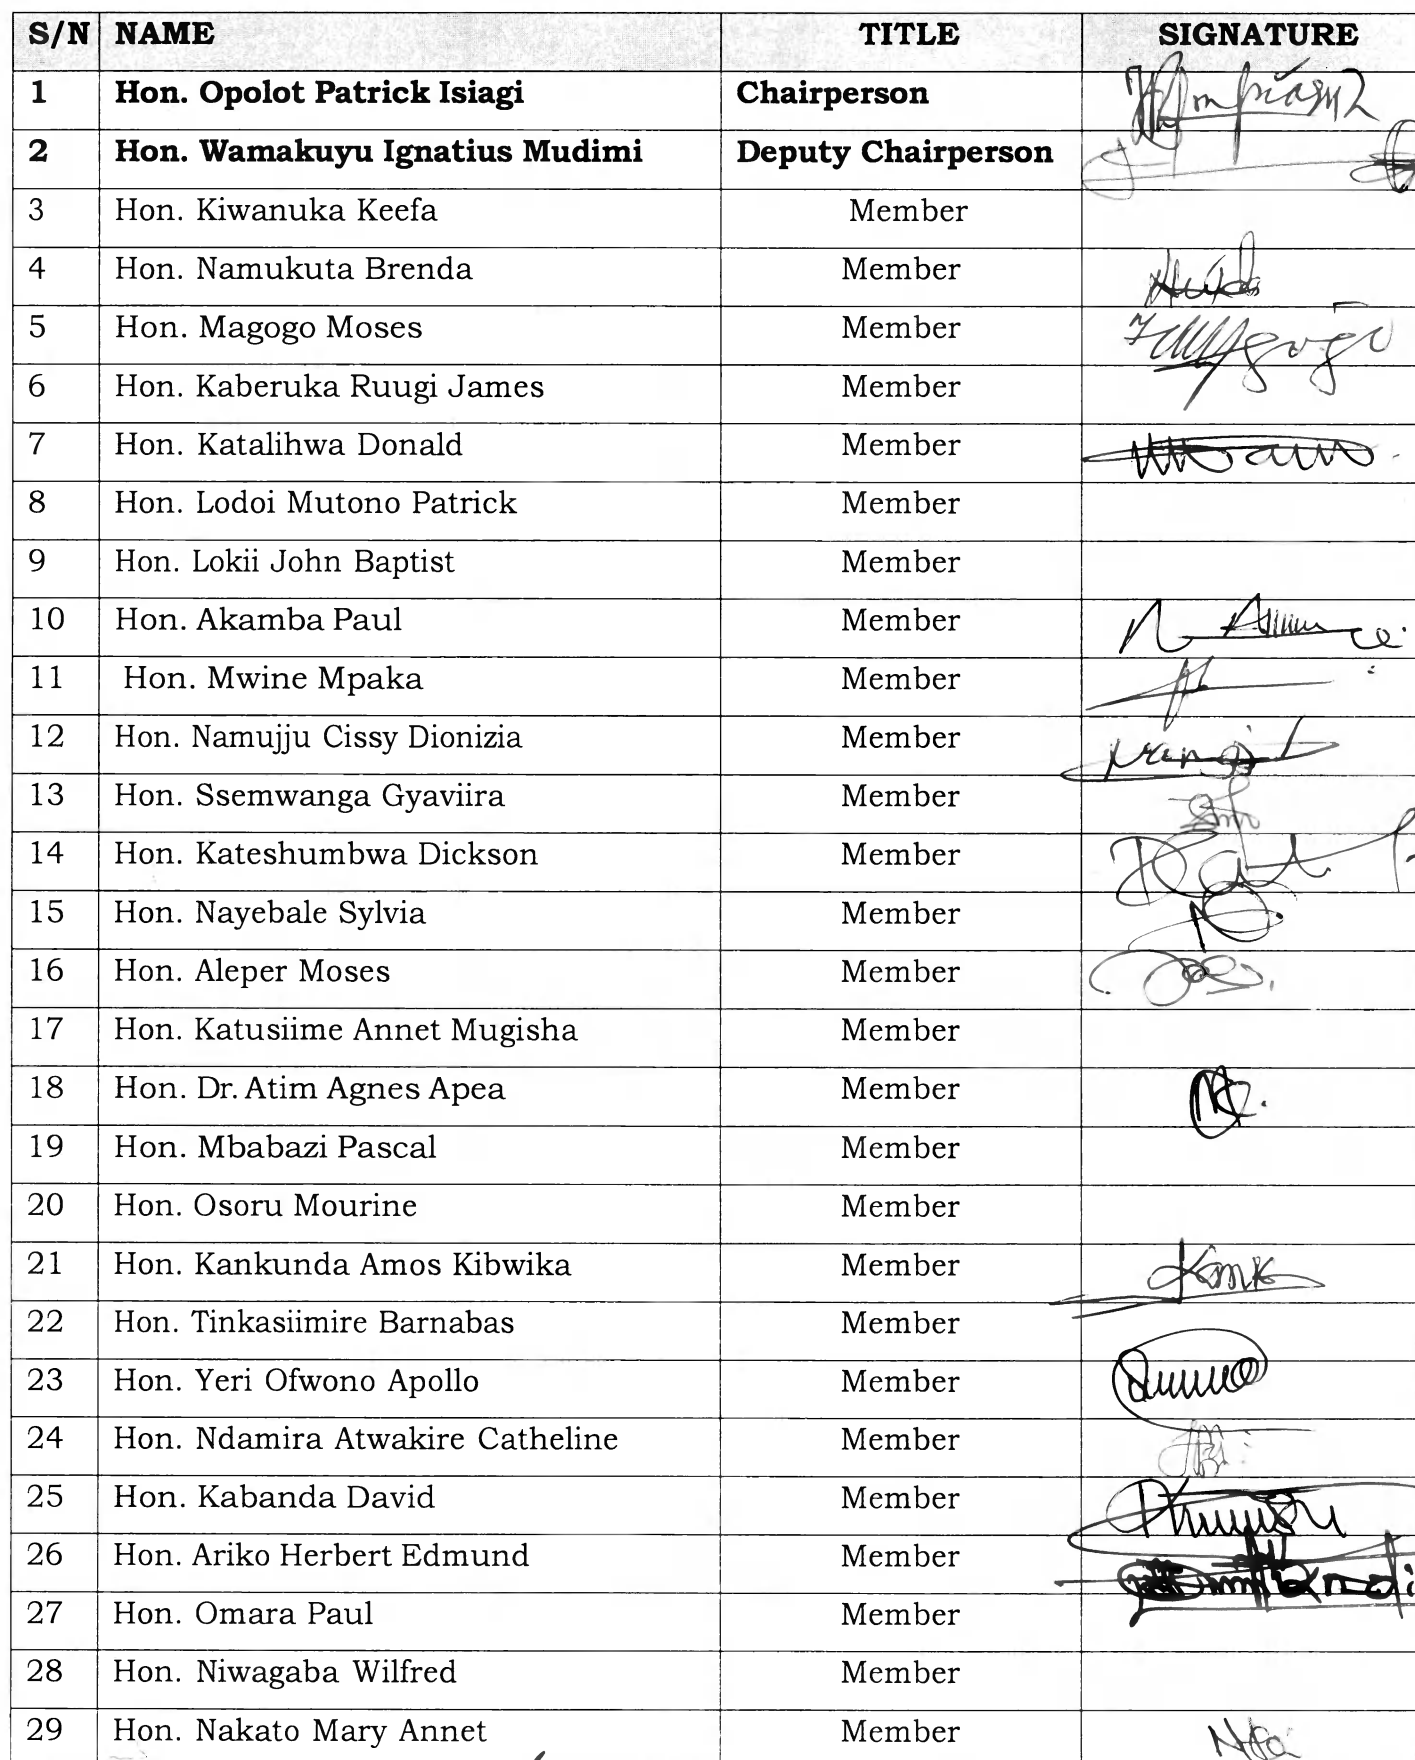 S/N NAME TITLE SIGNATURE
1 Hon. Opolot Patrick Isiagi Chairperson
2 Hon. Wamakuyu Ignatius Mudimi Deputy Chairperson
3 Hon. Kiwanuka Keefa Member
4 Hon. Namukuta Brenda Member
5 Hon. Magogo Moses Member
6 Hon. Kaberuka Ruugi James Member
7 Hon. Katalihwa Donald Member
8 Hon. Lodoi Mutono Patrick Member
9 Hon. Lokii John Baptist Member
10 Hon. Akamba Paul Member
11 Hon. Mwine Mpaka Member
12 Hon. Namujju Cissy Dionizia Member
13 Hon. Ssemwanga Gyaviira Member
14 Hon. Kateshumbwa Dickson Member
15 Hon. Nayebale Sylvia Member
16 Hon. Aleper Moses Member
17 Hon. Katusiime Annet Mugisha Member
18 Hon. Dr. Atim Agnes Apea Member
19 Hon. Mbabazi Pascal Member
20 Hon. Osoru Mourine Member
21 Hon. Kankunda Amos Kibwika Member
22 Hon. Tinkasiimire Barnabas Member
23 Hon. Yeri Ofwono Apollo Member
24 Hon. Ndamira Atwakire Catheline Member
25 Hon. Kabanda David Member
26 Hon. Ariko Herbert Edmund Member
27 Hon. Omara Paul Member
28 Hon. Niwagaba Wilfred Member
29 Hon. Nakato Mary Annet Member